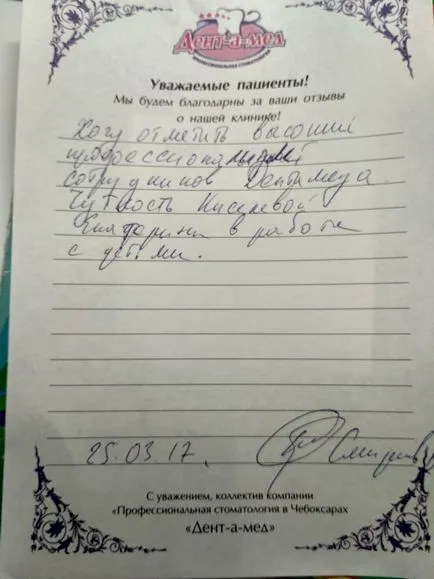 Дент-а-мед
ПРОФЕССИОНАЛЬНАЯ СТОМАТОЛОГИЯ
Уважаемые пациенты!
Мы будем благодарны за ваши отзывы
о нашей клинике!
Хочу отметить высокий
сотрудников Дентамеда.
Чуткость Киселевой
Екатерины в работе
с детьми.
25.03.17.
С уважением, коллектив компании
«Профессиональная стоматология в Чебоксарах
«Дент-а-мед»